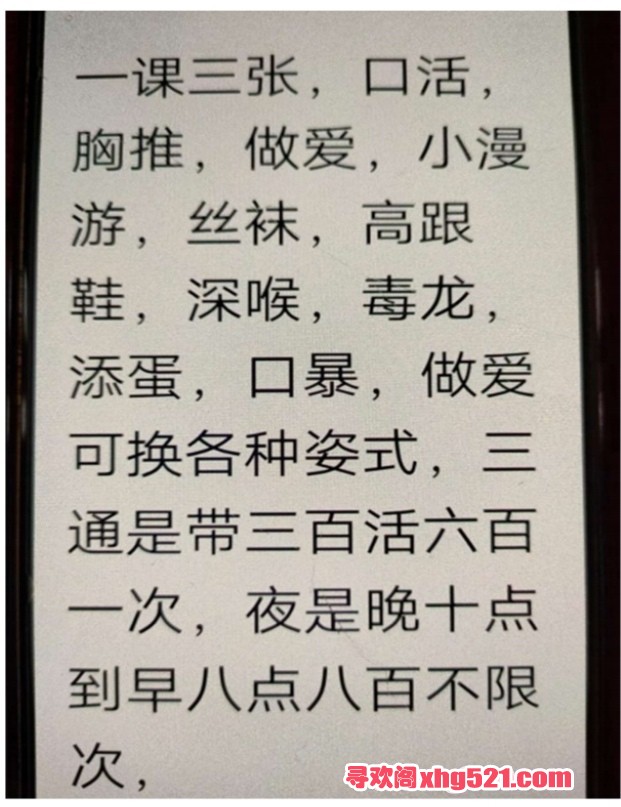 一课三张，口活，
胸推，做爱，小漫
游，丝袜，高跟
鞋，深喉，毒龙，
添蛋，口暴，做爱
可换各种姿式，三
通是带三百活六百
一次，夜是晚十点
到早八点八百不限
次，
寻欢阁xhg521.com